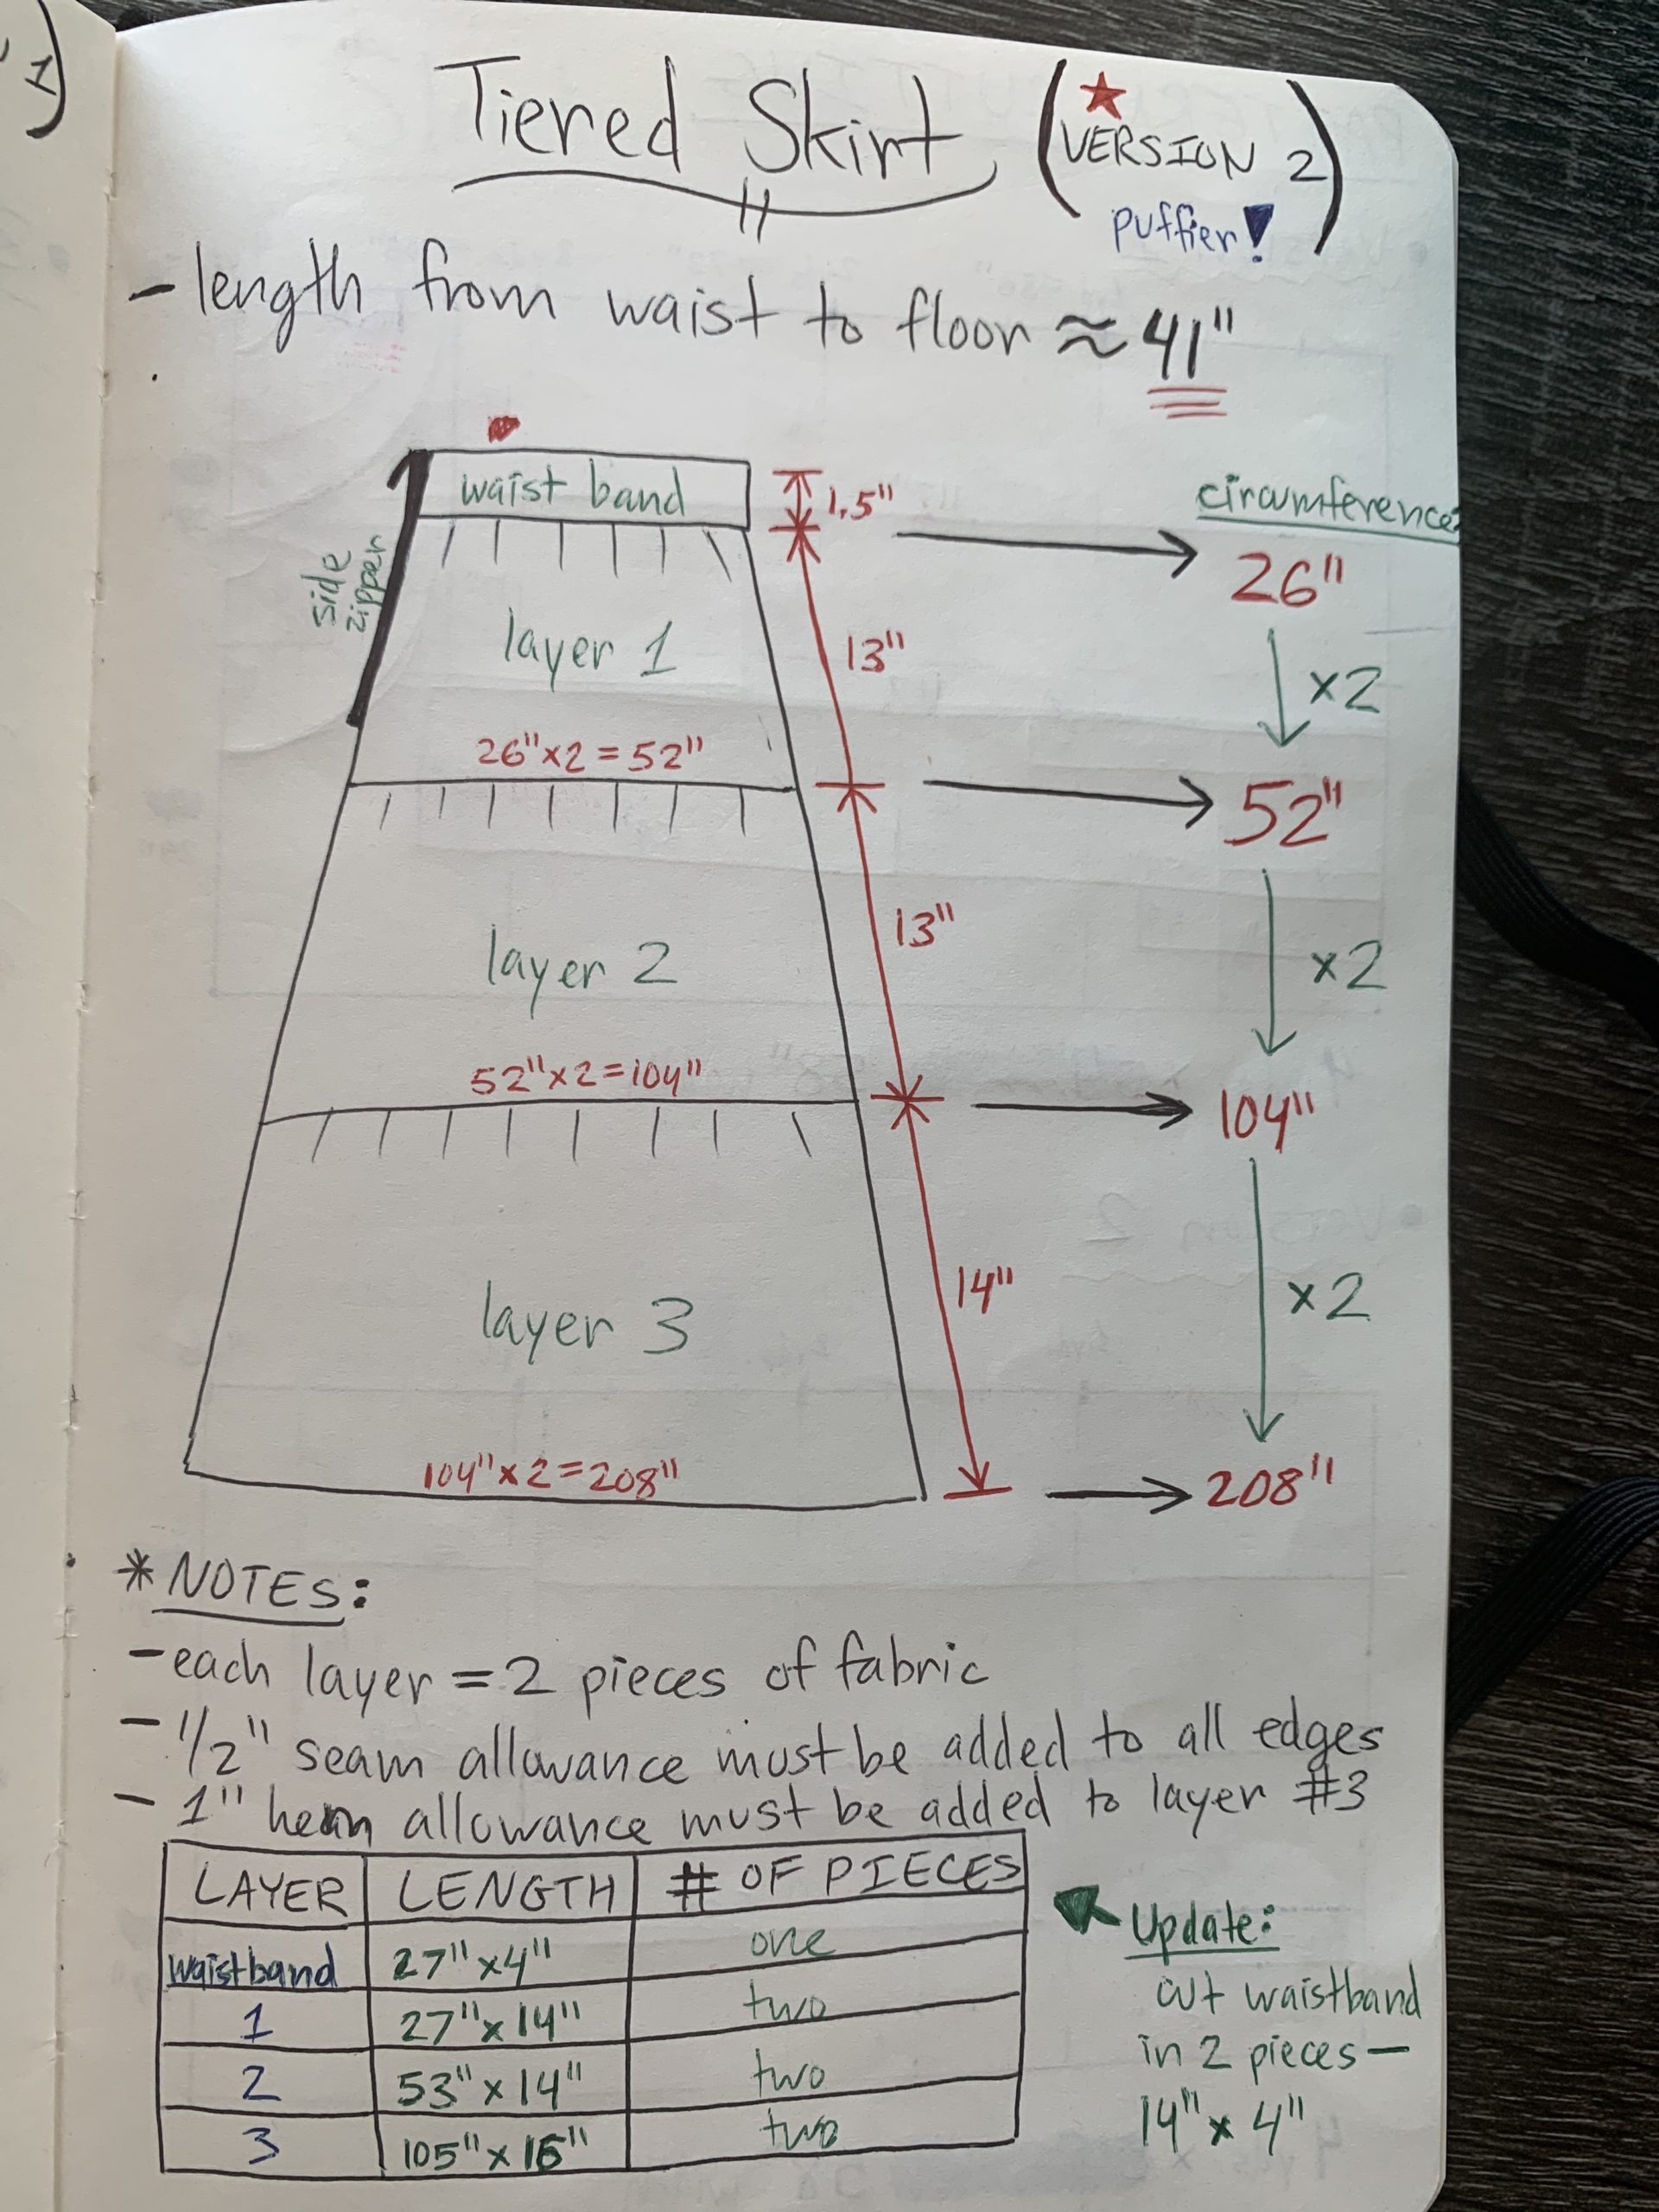 1)
Tiered Skirt (VERSION 2
puffier!)
- length from waist to floor ≈ 41"
waist band
1.5"
circumference:
26"
side
zipper
layer 1
13"
x2
26"x2=52"
52"
layer 2
13"
x2
52"x2=104"
104"
layer 3
14"
x2
104"x2=208"
208"
*NOTES:
-each layer = 2 pieces of fabric
- 1/2" seam allowance must be added to all edges
- 1" hem allowance must be added to layer #3
LAYER LENGTH # OF PIECES
waistband 27"x4" one
1 27"x14" two
2 53"x14" two
3 105"x15" two
Update:
cut waistband
in 2 pieces—
14"x4"